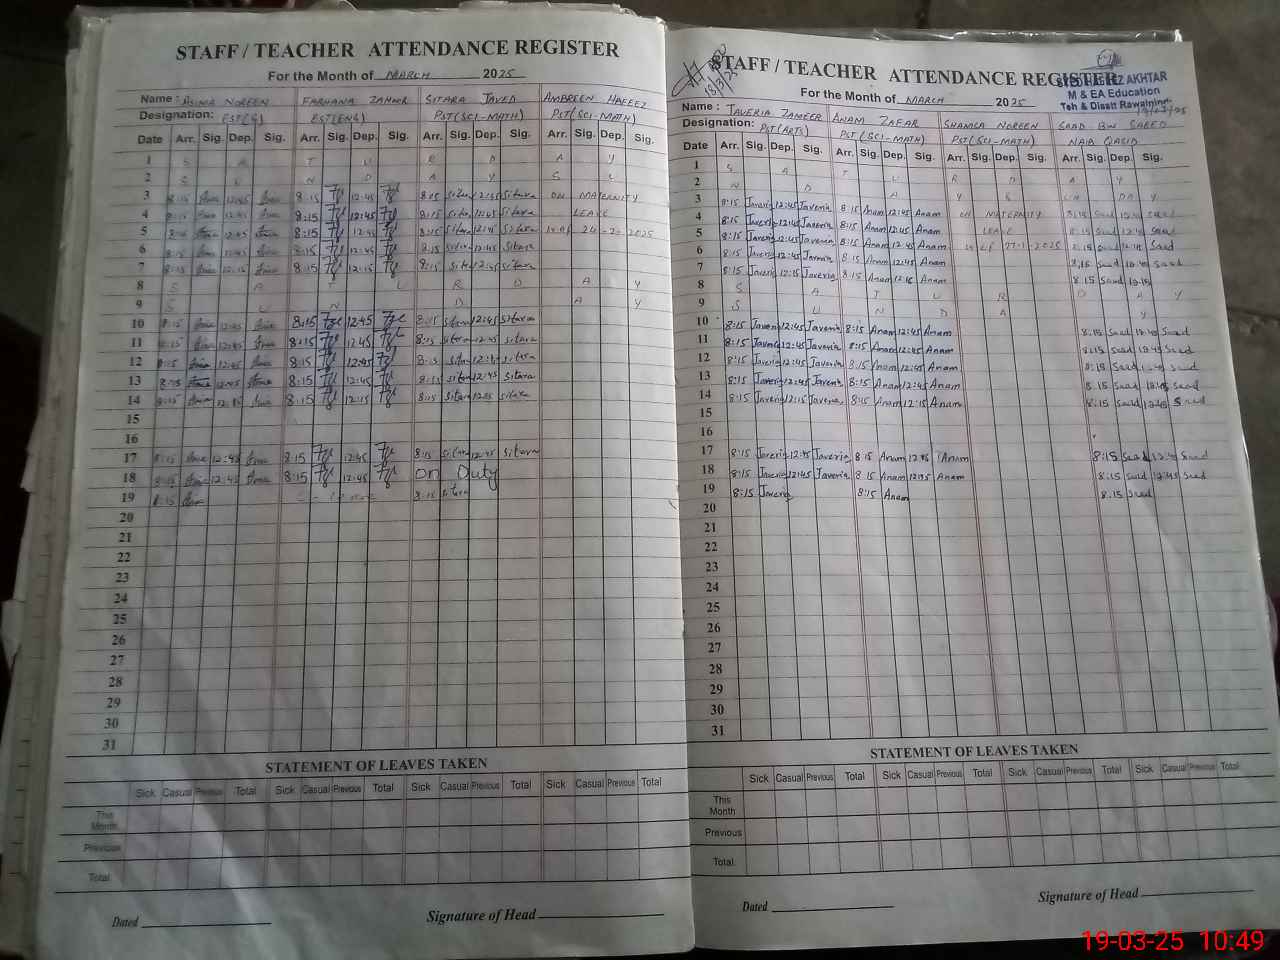 STAFF / TEACHER ATTENDANCE REGISTER
For the Month of MARCH 2025
Name : ASMA NOREEN FARHANA ZAHOOR SITARA JAVED AMBREEN HAFEEZ
Designation: EST(G) EST(ENG) PST(SCI-MATH) PST(SCI-MATH)
Date Arr. Sig. Dep. Sig. Arr. Sig. Dep. Sig. Arr. Sig. Dep. Sig. Arr. Sig. Dep. Sig.
1 S A T U R D A Y
2 S U N D A Y S U
3 8:15 12:45 8:15 12:45 8:15 Sitara 12:45 Sitara ON MATERNITY
4 8:15 12:45 8:15 12:45 8:15 Sitara 12:45 Sitara LEAVE
5 8:15 12:45 8:15 12:45 8:15 Sitara 12:45 Sitara 2025
6 8:15 12:45 8:15 12:45 8:15 Sitara 12:45 Sitara
7 8:15 12:15 8:15 12:15 8:15 Sitara 12:45 Sitara
8 S A T U R D A Y
9 S U N D A Y
10 8:15 12:45 8:15 12:45 8:15 Sitara 12:45 Sitara
11 8:15 12:45 8:15 12:45 8:15 Sitara 12:45 Sitara
12 8:15 12:45 8:15 12:45 8:15 Sitara 12:45 Sitara
13 8:15 12:45 8:15 12:45 8:15 Sitara 12:45 Sitara
14 8:15 8:15 12:15 8:15 Sitara Sitara
15
16
17 8:15 12:45 8:15 12:45 8:15 Sitara 12:45 Sitara
18 8:15 12:45 8:15 12:45 On Duty
19 8:15 8:15 Sitara
20
21
22
23
24
25
26
27
28
29
30
31
STATEMENT OF LEAVES TAKEN
Sick Casual Previous Total Sick Casual Previous Total Sick Casual Previous Total Sick Casual Previous Total
This Month
Previous
Total
Dated
Signature of Head
STAFF / TEACHER ATTENDANCE REGISTER
18/3/25
SYED HAFEEZ AKHTAR
M & EA Education
Teh & Disstt Rawalpindi
For the Month of MARCH 2025
Name : JAVERIA ZAMEER ANAM ZAFAR SHAMSA NOREEN SAAD BIN SAEED
Designation: PST(ARTS) PST(SCI-MATH) PST(SCI-MATH) NAIB QASID
Date Arr. Sig. Dep. Sig. Arr. Sig. Dep. Sig. Arr. Sig. Dep. Sig. Arr. Sig. Dep. Sig.
1 S A T U R D A Y
2 N D A Y S UN DA Y
3 8:15 Javeria 12:45 Javeria 8:15 Anam 12:45 Anam ON MATERNITY 8:15 Saad 12:45 Saad
4 8:15 Javeria 12:45 Javeria 8:15 Anam 12:45 Anam LEAVE 8:15 Saad 12:45 Saad
5 8:15 Javeria 12:45 Javeria 8:15 Anam 12:45 Anam 2025 8:15 Saad 12:45 Saad
6 8:15 Javeria 12:45 Javeria 8:15 Anam 12:45 Anam 8:15 Saad 12:45 Saad
7 8:15 Javeria 12:15 Javeria 8:15 Anam 12:15 Anam 8:15 Saad 12:15
8 S A T U R D A Y
9 S U N D A Y
10 8:15 Javeria 12:45 Javeria 8:15 Anam 12:45 Anam 8:15 Saad 12:45 Saad
11 8:15 Javeria 12:45 Javeria 8:15 Anam 12:45 Anam 8:15 Saad 12:45 Saad
12 8:15 Javeria 12:45 Javeria 8:15 Anam 12:45 Anam 8:15 Saad 12:45 Saad
13 8:15 Javeria 12:45 Javeria 8:15 Anam 12:45 Anam 8:15 Saad 12:45 Saad
14 8:15 Javeria 12:15 Javeria 8:15 Anam 12:15 Anam 8:15 Saad Saad
15
16
17 8:15 Javeria 12:45 Javeria 8:15 Anam 12:45 Anam 8:15 Saad 12:45 Saad
18 8:15 Javeria 12:45 Javeria 8:15 Anam 12:45 Anam 8:15 Saad 12:45 Saad
19 8:15 Javeria 8:15 Anam 8:15 Saad
20
21
22
23
24
25
26
27
28
29
30
31
STATEMENT OF LEAVES TAKEN
Sick Casual Previous Total Sick Casual Previous Total Sick Casual Previous Total Sick Casual Previous Total
This Month
Previous
Total
Dated
Signature of Head
19-03-25 10:49